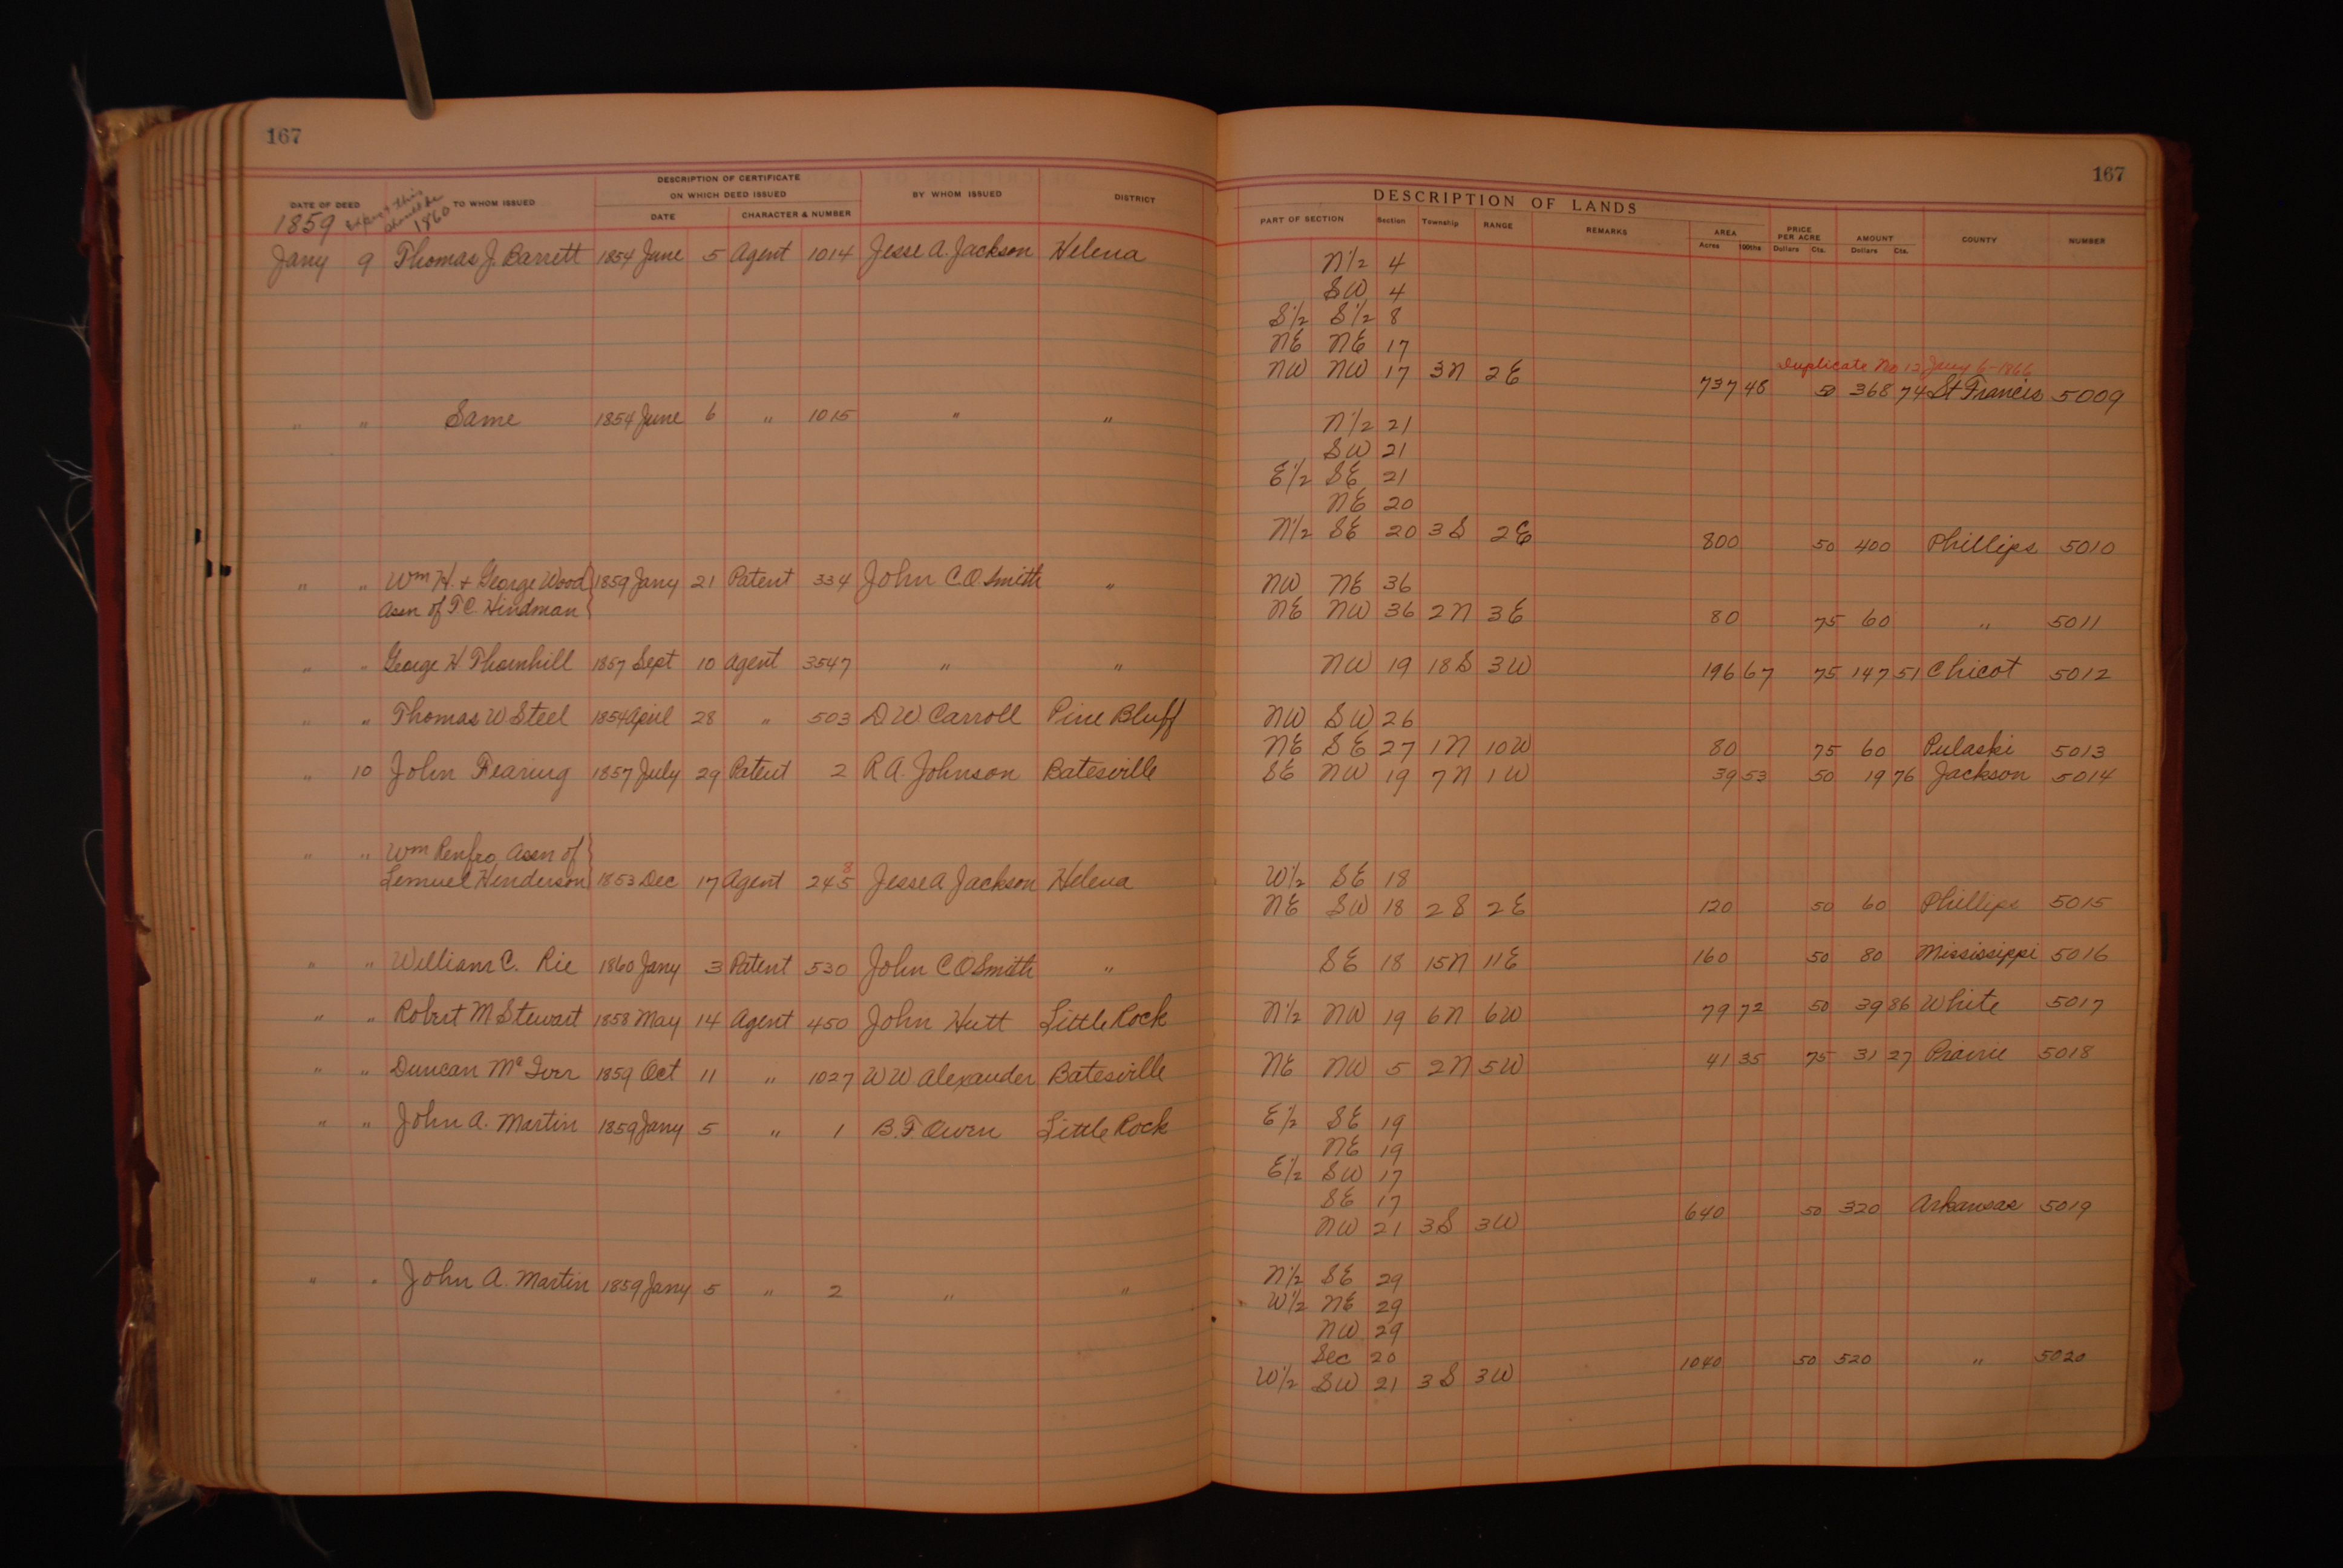 167
167
DESCRIPTION OF CERTIFICATE
ON WHICH DEED ISSUED
DATE OF DEED TO WHOM ISSUED DATE CHARACTER & NUMBER BY WHOM ISSUED DISTRICT
DESCRIPTION OF LANDS
PART OF SECTION Section Township RANGE REMARKS AREA Acres 100ths PRICE PER ACRE Dollars Cts. AMOUNT Dollars Cts. COUNTY NUMBER
1859 this should be 1860
Jany 9 Thomas J. Barrett 1854 June 5 Agent 1014 Jesse A. Jackson Helena N 1/2 4
SW 4
S 1/2 S 1/2 8
NE NE 17
Duplicate No 12 Jany 6-1866
NW NW 17 3N 2E 737 48 50 368 74 St Francis 5009
" " Same 1854 June 6 " 1015 " " N 1/2 21
SW 21
E 1/2 SE 21
NE 20
N 1/2 SE 20 3S 2E 800 50 400 Phillips 5010
" " Wm H. + George Wood } 1859 Jany 21 Patent 334 John C.O. Smith " NW NE 36
Assn of T.C. Hindman } NE NW 36 2N 3E 80 75 60 " 5011
" " George H Thornhill 1857 Sept 10 Agent 3547 " " NW 19 18S 3W 196 67 75 147 51 Chicot 5012
" " Thomas W Steel 1854 April 28 " 503 D.W. Carroll Pine Bluff NW SW 26
NE SE 27 1N 10W 80 75 60 Pulaski 5013
" 10 John Fearing 1857 July 29 Patent 2 R.A. Johnson Batesville SE NW 19 7N 1W 39 53 50 19 76 Jackson 5014
" " Wm Renfro Assn of }
8
Lemuel Henderson } 1853 Dec 17 Agent 245 Jesse A Jackson Helena W 1/2 SE 18
NE SW 18 2S 2E 120 50 60 Phillips 5015
" " William C. Rie 1860 Jany 3 Patent 530 John C O Smith " SE 18 15N 11E 160 50 80 Mississippi 5016
" " Robert M Stewart 1858 May 14 Agent 450 John Hutt Little Rock N 1/2 NW 19 6N 6W 79 72 50 39 86 White 5017
" " Duncan 1859 Oct 11 " 1027 W W Alexander Batesville NE NW 5 2N 5W 41 35 75 31 27 Prairie 5018
" " John A. Martin 1859 Jany 5 " 1 B.F. Owen Little Rock E 1/2 SE 19
NE 19
E 1/2 SW 17
SE 17
NW 21 3S 3W 640 50 320 Arkansas 5019
" " John A. Martin 1859 Jany 5 " 2 " " N 1/2 SE 29
W 1/2 NE 29
NW 29
Sec 20
W 1/2 SW 21 3S 3W 1040 50 520 " 5020